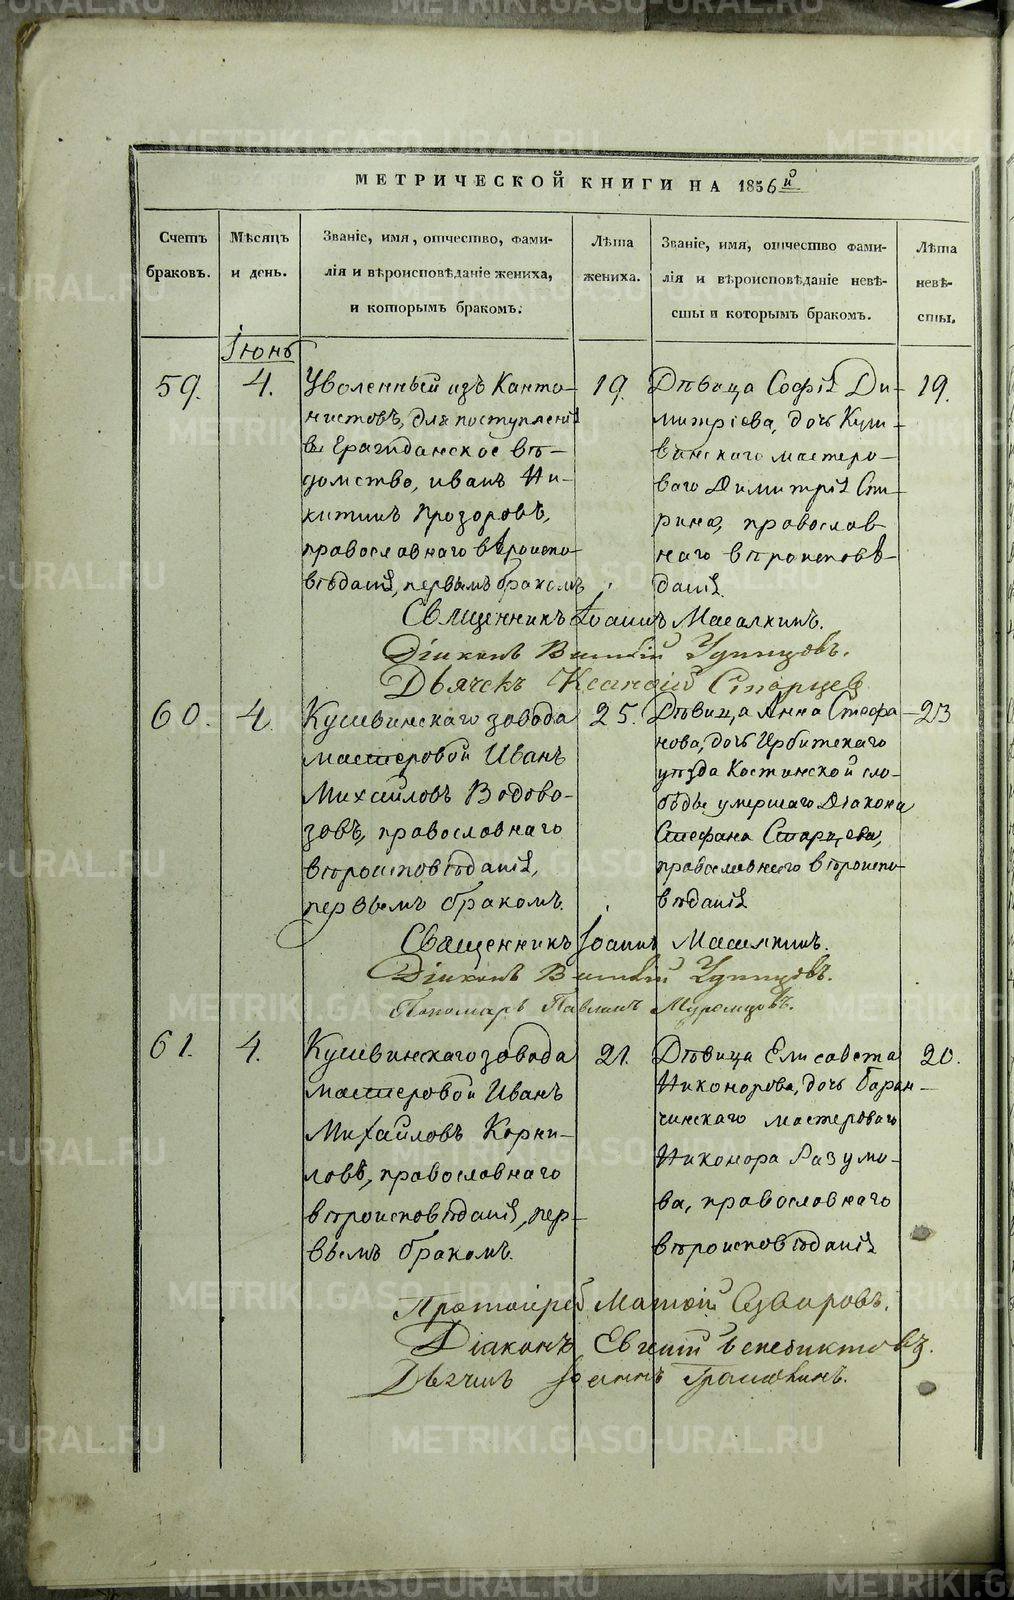 МЕТРИЧЕСКОЙ КНИГИ НА 1856й
Счетъ браковъ.
Мѣсяцъ и день.
Званіе, имя, отчество, фами-
лія и вѣроисповѣданіе жениха,
и которымъ бракомъ.
Лѣта жениха.
Званіе, имя, отчество фами-
лія и вѣроисповѣданіе невѣ-
сты и которымъ бракомъ.
Лѣта невѣ-
сты.
Іюнь
59.
4.
Уволенный изъ Канто-
нистовъ, для поступленія
въ Гражданское вѣ-
домство, иванъ Ни-
китинъ Прозоровъ,
православнаго вѣроиспо-
вѣданія, первымъ бракомъ
19.
Дѣвица Софія Ди-
митріева, дочь Куш-
винскаго мастеро-
ваго Димитрія Спи-
рина, православ
наго вѣроисповѣ-
данія.
19.
Священникъ Іоаннъ Масалкинъ.
Діаконъ Удинцовъ.
Дьячекъ Старцев
60.
4.
Кушвинскаго завода
мастеровой Иванъ
Михайловъ Водово-
зовъ, православнаго
вѣроисповѣданія,
первымъ бракомъ.
25.
Дѣвица Анна Стефа-
нова, дочь Ирбитскаго
уѣзда Костинской сло-
боды умершаго Діакона
Стефана Старцева,
православнаго вѣроиспо-
вѣданія
23
Священникъ Іоаннъ Масалкинъ.
Діаконъ Удинцовъ.
Пономарь Павлинъ Муромцовъ.
61.
4.
Кушвинскаго завода
мастеровой Иванъ
Михайловъ Корни-
ловъ, православнаго
вѣроисповѣданія, пер-
вымъ бракомъ.
21.
Дѣвица Елисавета
Никонорова, дочь Баран-
чинскаго мастероваго
Никонора Разумо-
ва, православнаго
вѣроисповѣданія
20.
Протоіерей Матѳій
Діаконъ Евгеній Венедиктовъ.
Дьячекъ Іоаннъ